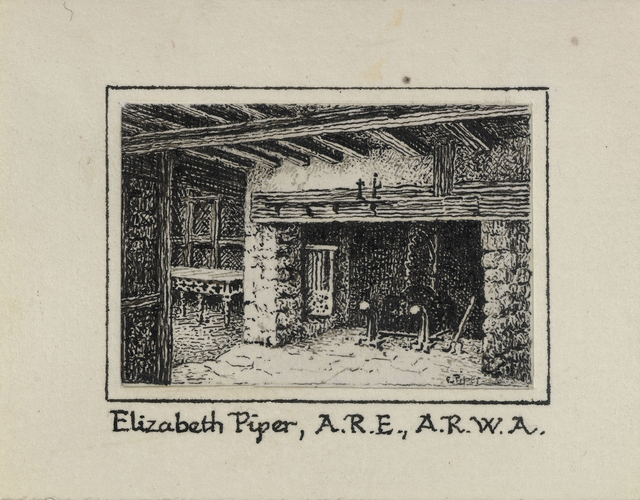 E. Piper
Elizabeth Piper, A.R.E., A.R.W.A.